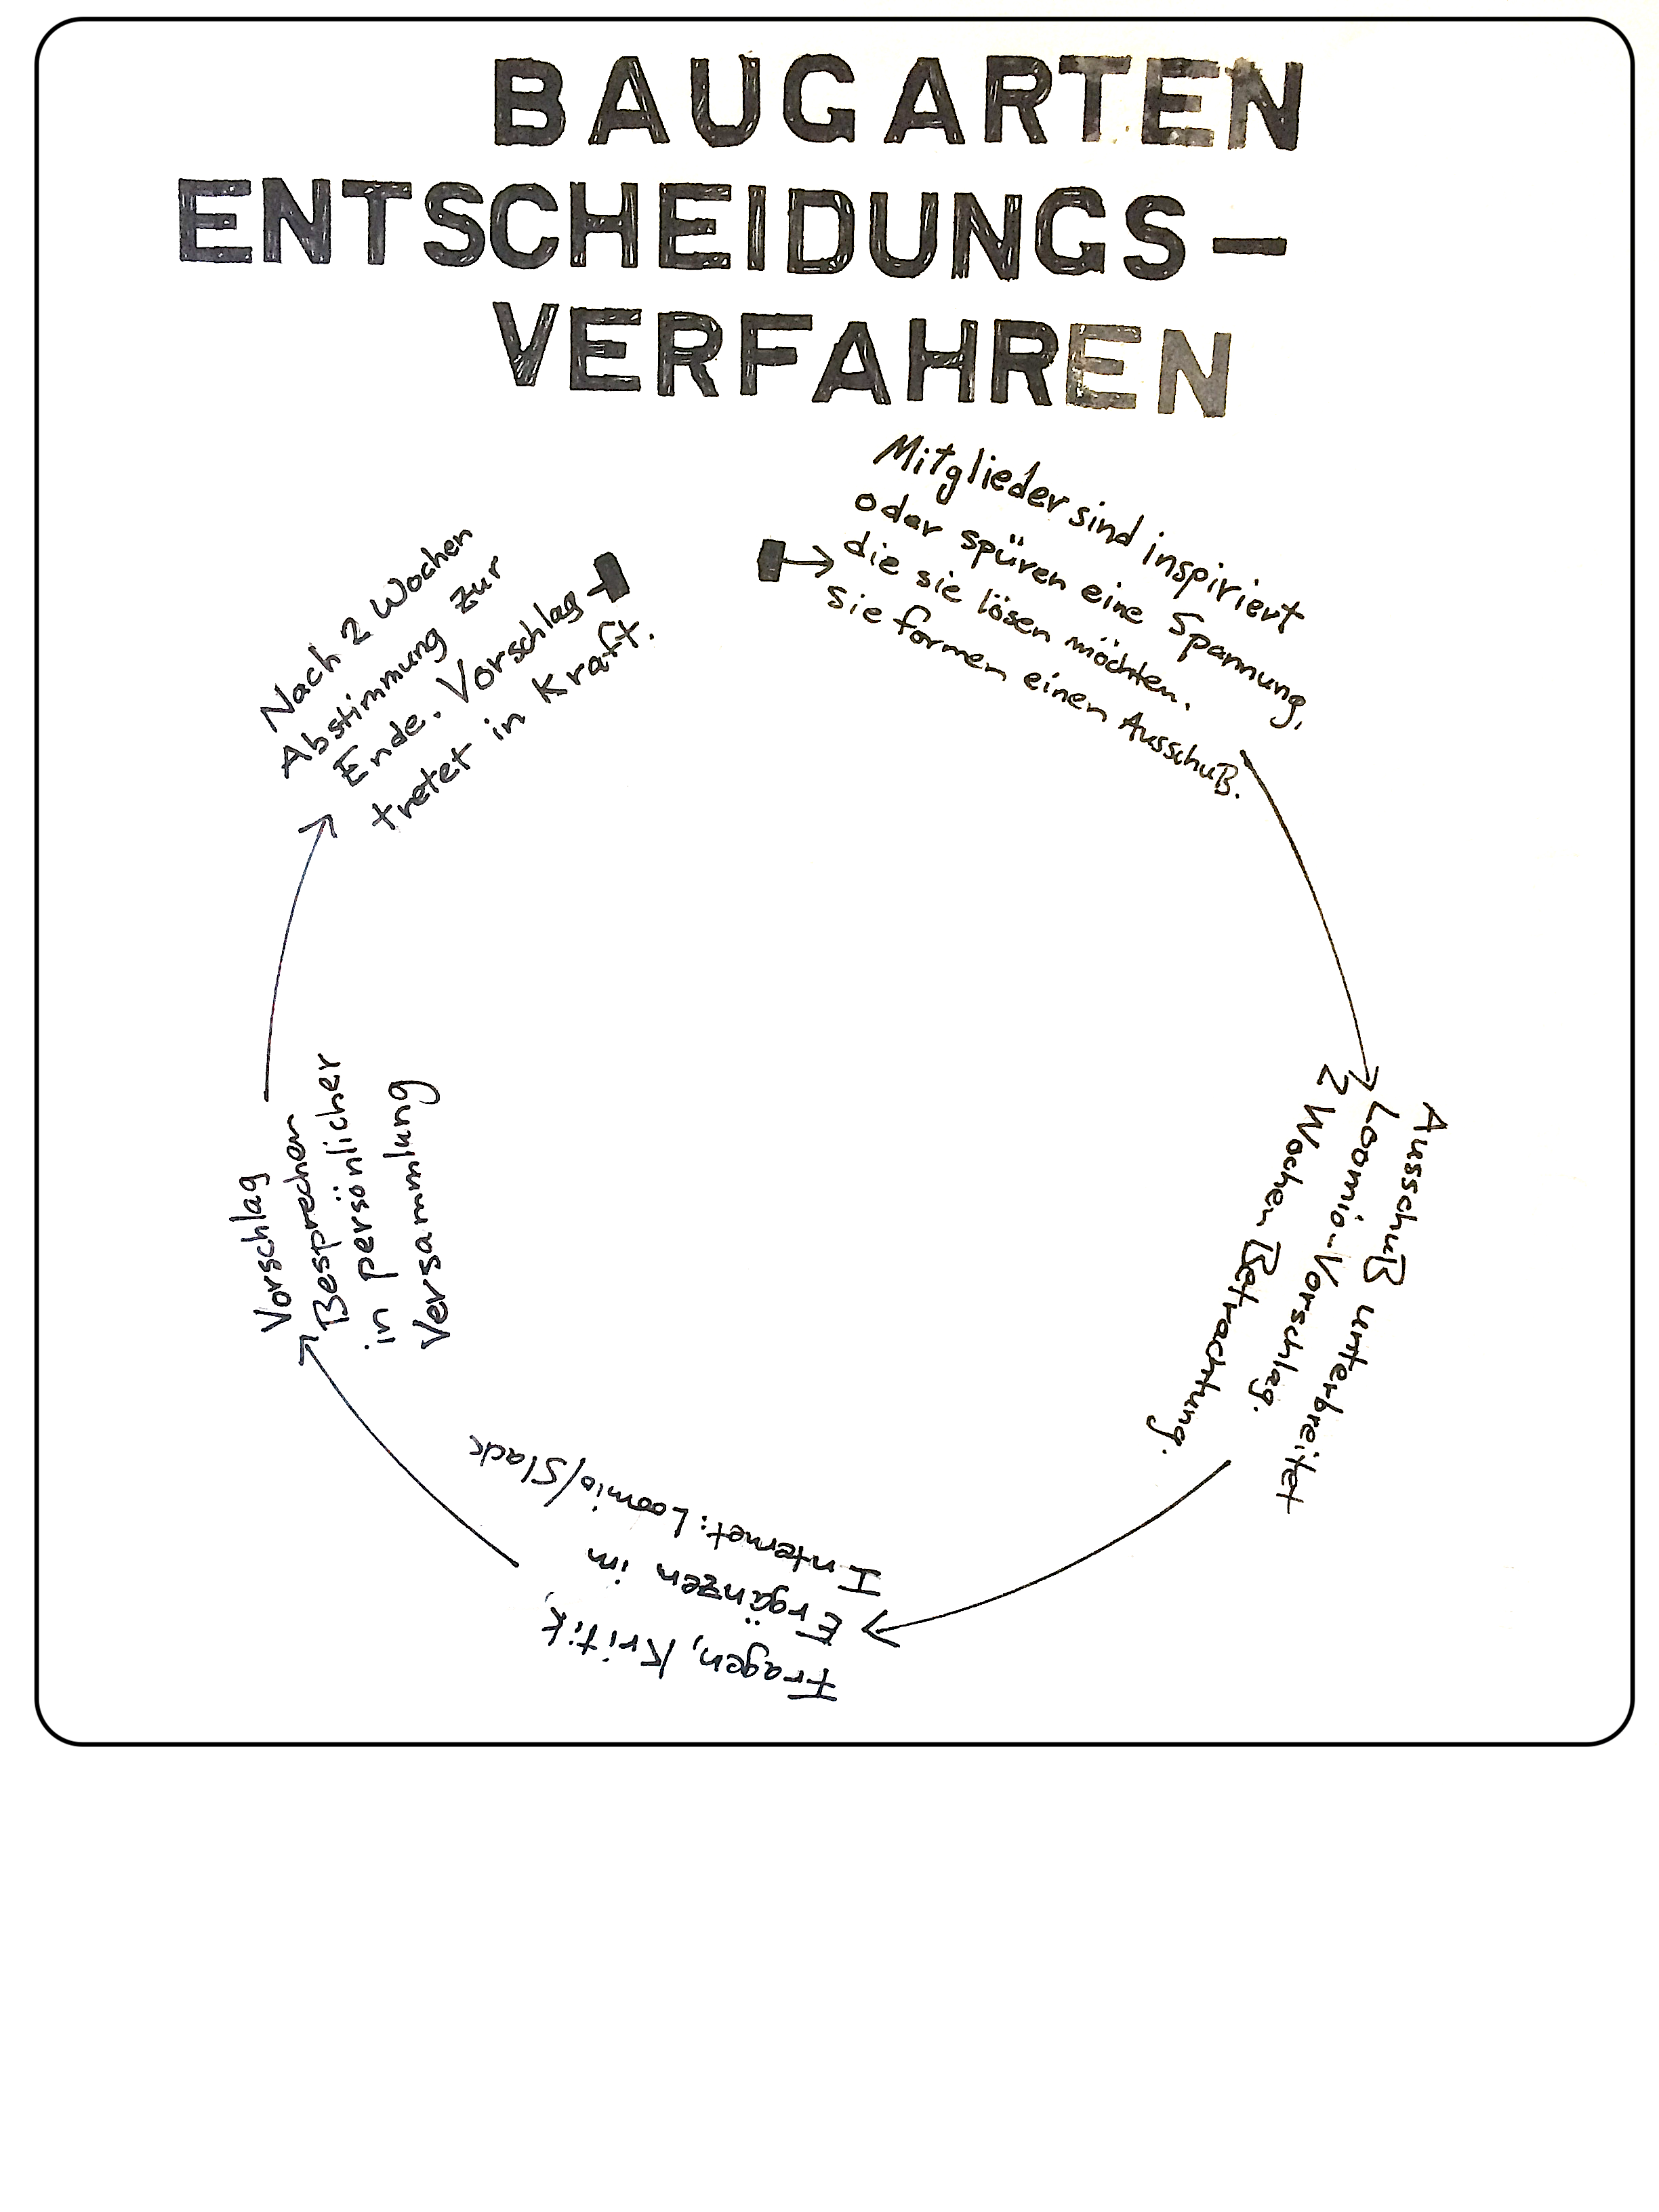 BAUGARTEN
ENTSCHEIDUNGS-
VERFAHREN
Mitglieder sind inspiriert
oder spüren eine Spannung,
die sie lösen möchten.
Sie formen einen Ausschuß.
Ausschuß unterbreitet
Loomio-Vorschlag.
2 Wochen Betrachtung.
Fragen, Kritik,
Ergänzen im
Internet: Loomio/Slack
Vorschlag
Besprechen
in persönlicher
Versammlung
Nach 2 Wochen
Abstimmung zur
Ende. Vorschlag
tretet in Kraft.